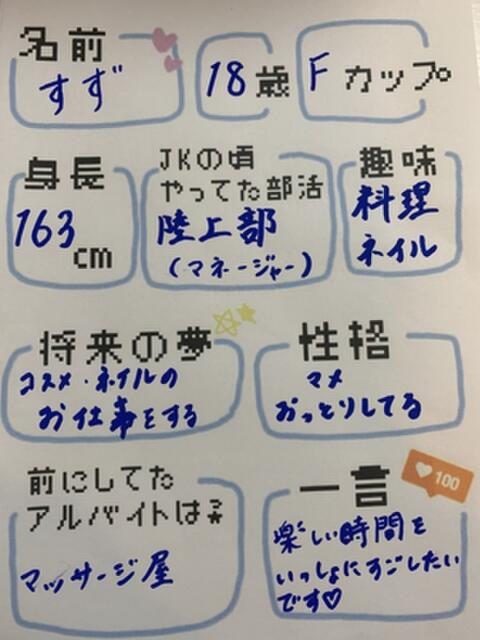 名前
すず
18歳
Fカップ
身長
163
cm
JKの頃
やってた部活
陸上部
(マネージャー)
趣味
料理
ネイル
将来の夢
コスメ・ネイルの
お仕事をする
性格
マメ
おっとりしてる
前にしてた
アルバイトは?
マッサージ屋
一言
100
楽しい時間を
いっしょにすごしたい
です♡